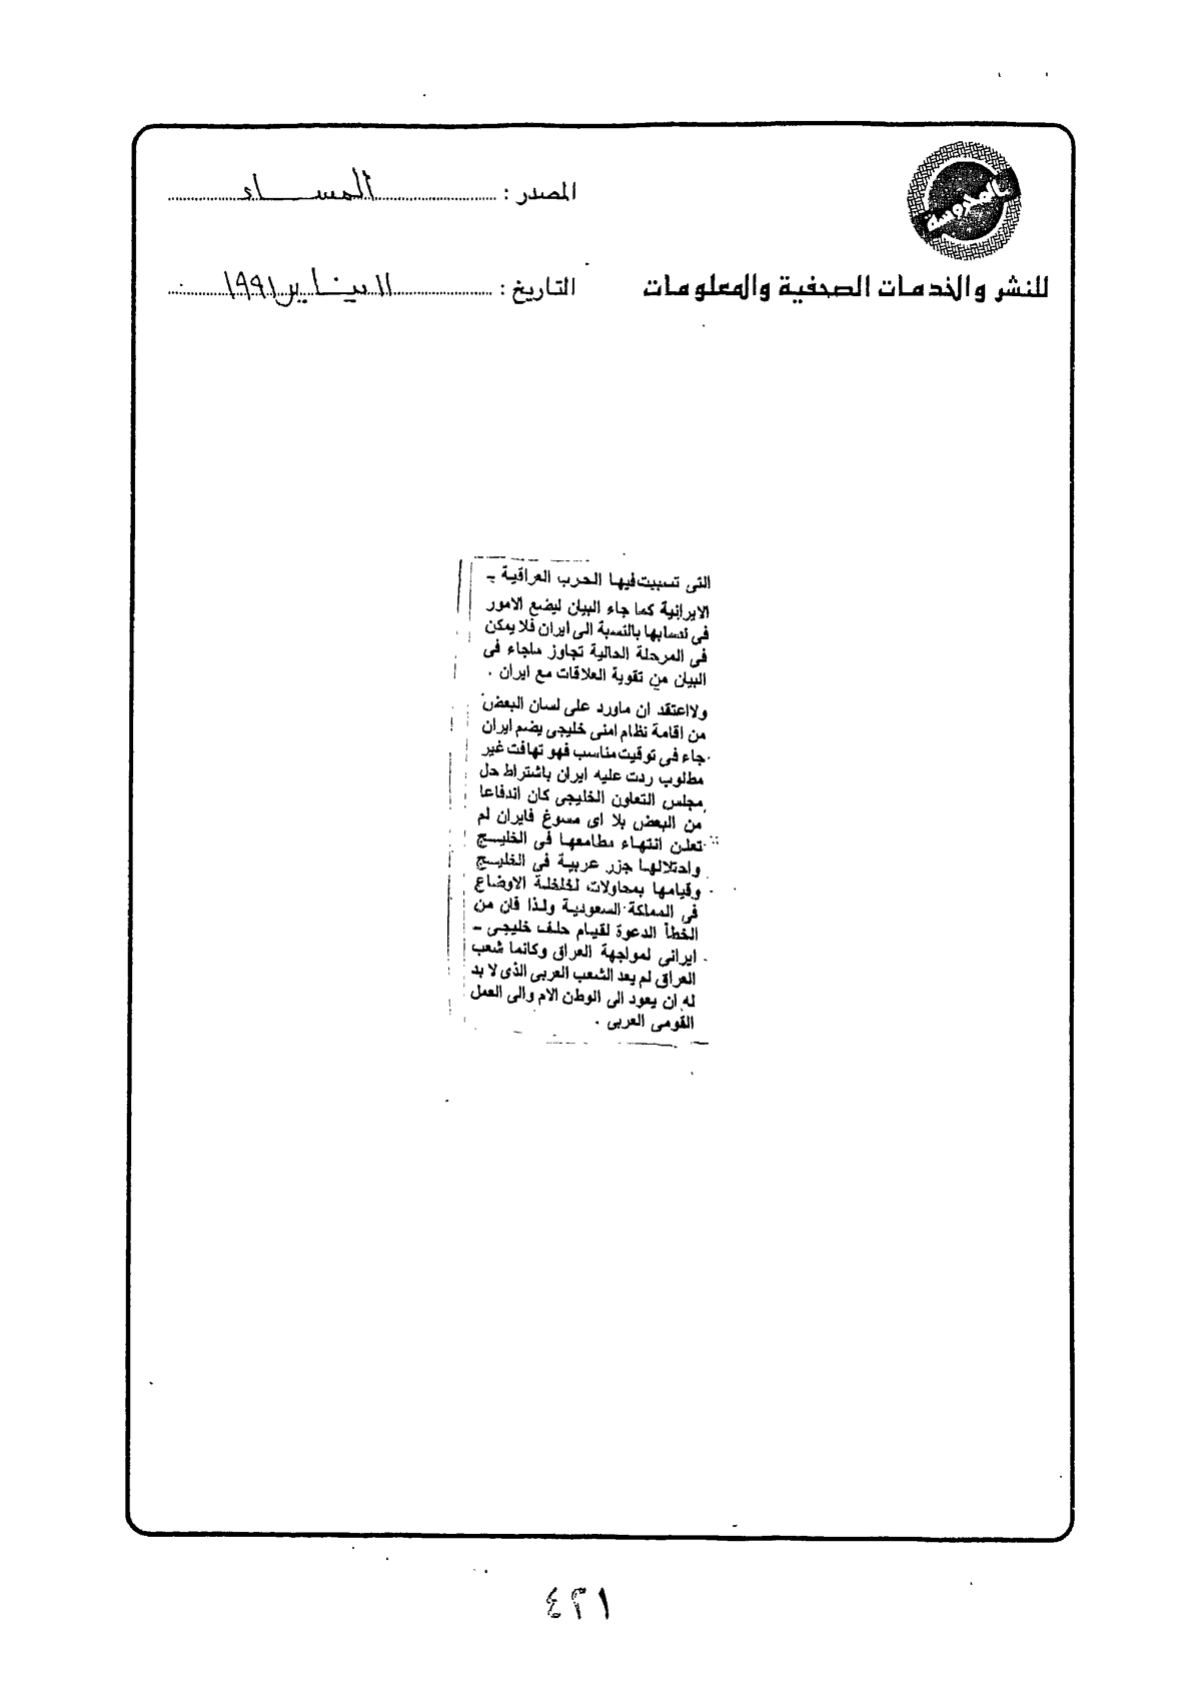 المحروسة
للنشر والخدمات الصحفية والمعلومات
المصدر : المساء
التاريخ : ١١ يناير ١٩٩١
التى تسببت فيها الحرب العراقية ـ
الايرانية كما جاء البيان ليضع الامور
فى نصابها بالنسبة الى ايران فلا يمكن
فى المرحلة الحالية تجاوز ماجاء فى
البيان من تقوية العلاقات مع ايران .
ولااعتقد ان ماورد على لسان البعض
من اقامة نظام امنى خليجى يضم ايران
جاء فى توقيت مناسب فهو تهافت غير
مطلوب ردت عليه ايران باشتراط حل
مجلس التعاون الخليجى كان اندفاعا
من البعض بلا اى مسوغ فايران لم
تعلن انتهاء مطامعها فى الخليج
واحتلالها جزر عربية فى الخليج
وقيامها بمحاولات لخلخلة الاوضاع
فى المملكة السعودية ولذا فان من
الخطأ الدعوة لقيام حلف خليجى ـ
ايرانى لمواجهة العراق وكانما شعب
العراق لم يعد الشعب العربى الذى لا بد
له ان يعود الى الوطن الام والى العمل
القومى العربى .
٤٢١